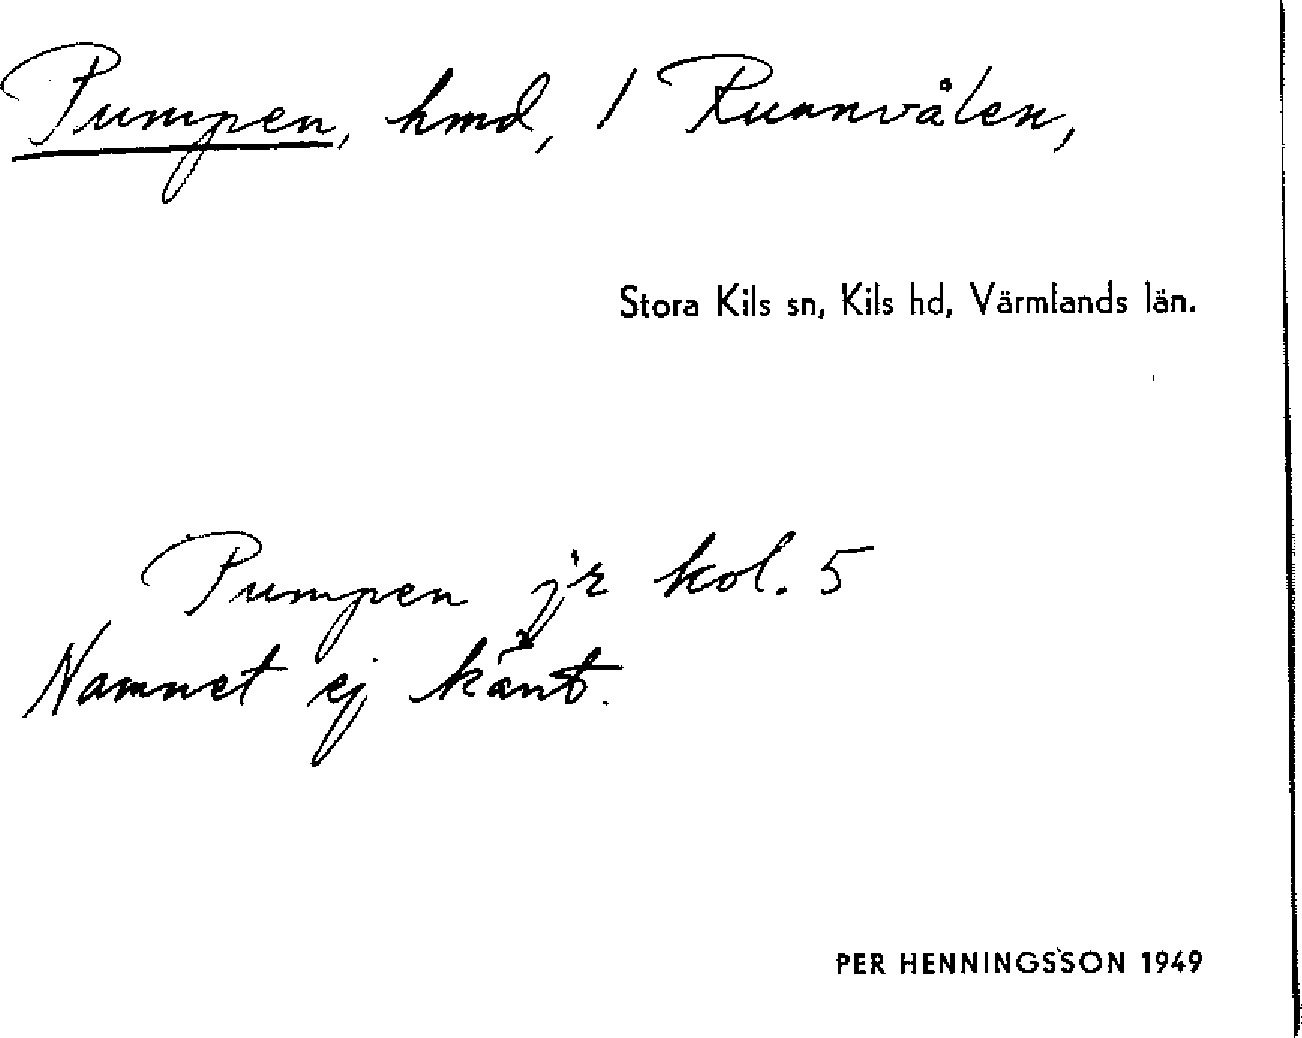 Pumpen, hmd, / Runnvålen,
Stora Kils sn, Kils hd, Värmlands län.
Pumpen jr kol. 5
Namnet ej känt.
PER HENNINGSSON 1949